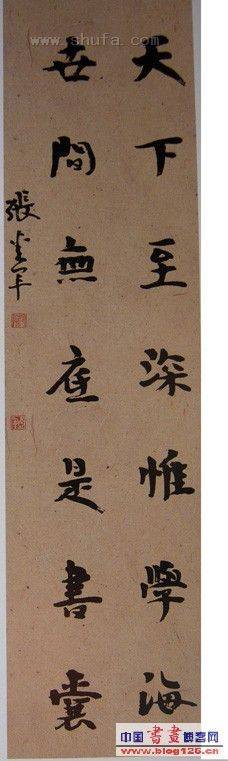 www.shufa.com
天下至深惟學海
世間無底是書囊
張
中国書畫博客网
www.blog126.cn